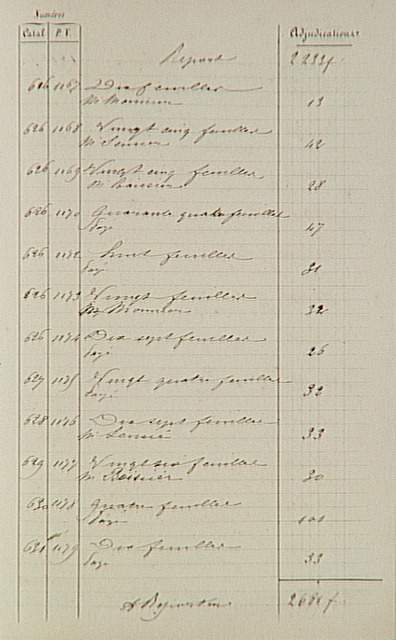 Numéros
Catal P.V. Adjudications
Report 2232 f
626 1167 Dix feuilles
Mr Monnier 13
626 1168 Vingt cinq feuilles
Mr 42
626 1169 Vingt cinq feuilles
Mr 28
626 1170 Quarante quatre feuilles
Payé 47
626 1172 Huit feuilles
Payé 31
626 1173 Vingt feuilles
Mr Monnier 32
626 1174 Dix sept feuilles
Payé 26
627 1175 Vingt quatre feuilles
Payé 32
628 1176 Dix sept feuilles
Mr 33
629 1177 Vingt six feuilles
Mr 30
630 1178 Quatre feuilles
Payé 101
631 1179 Dix feuilles
Payé 33
A Reporter 2681 f